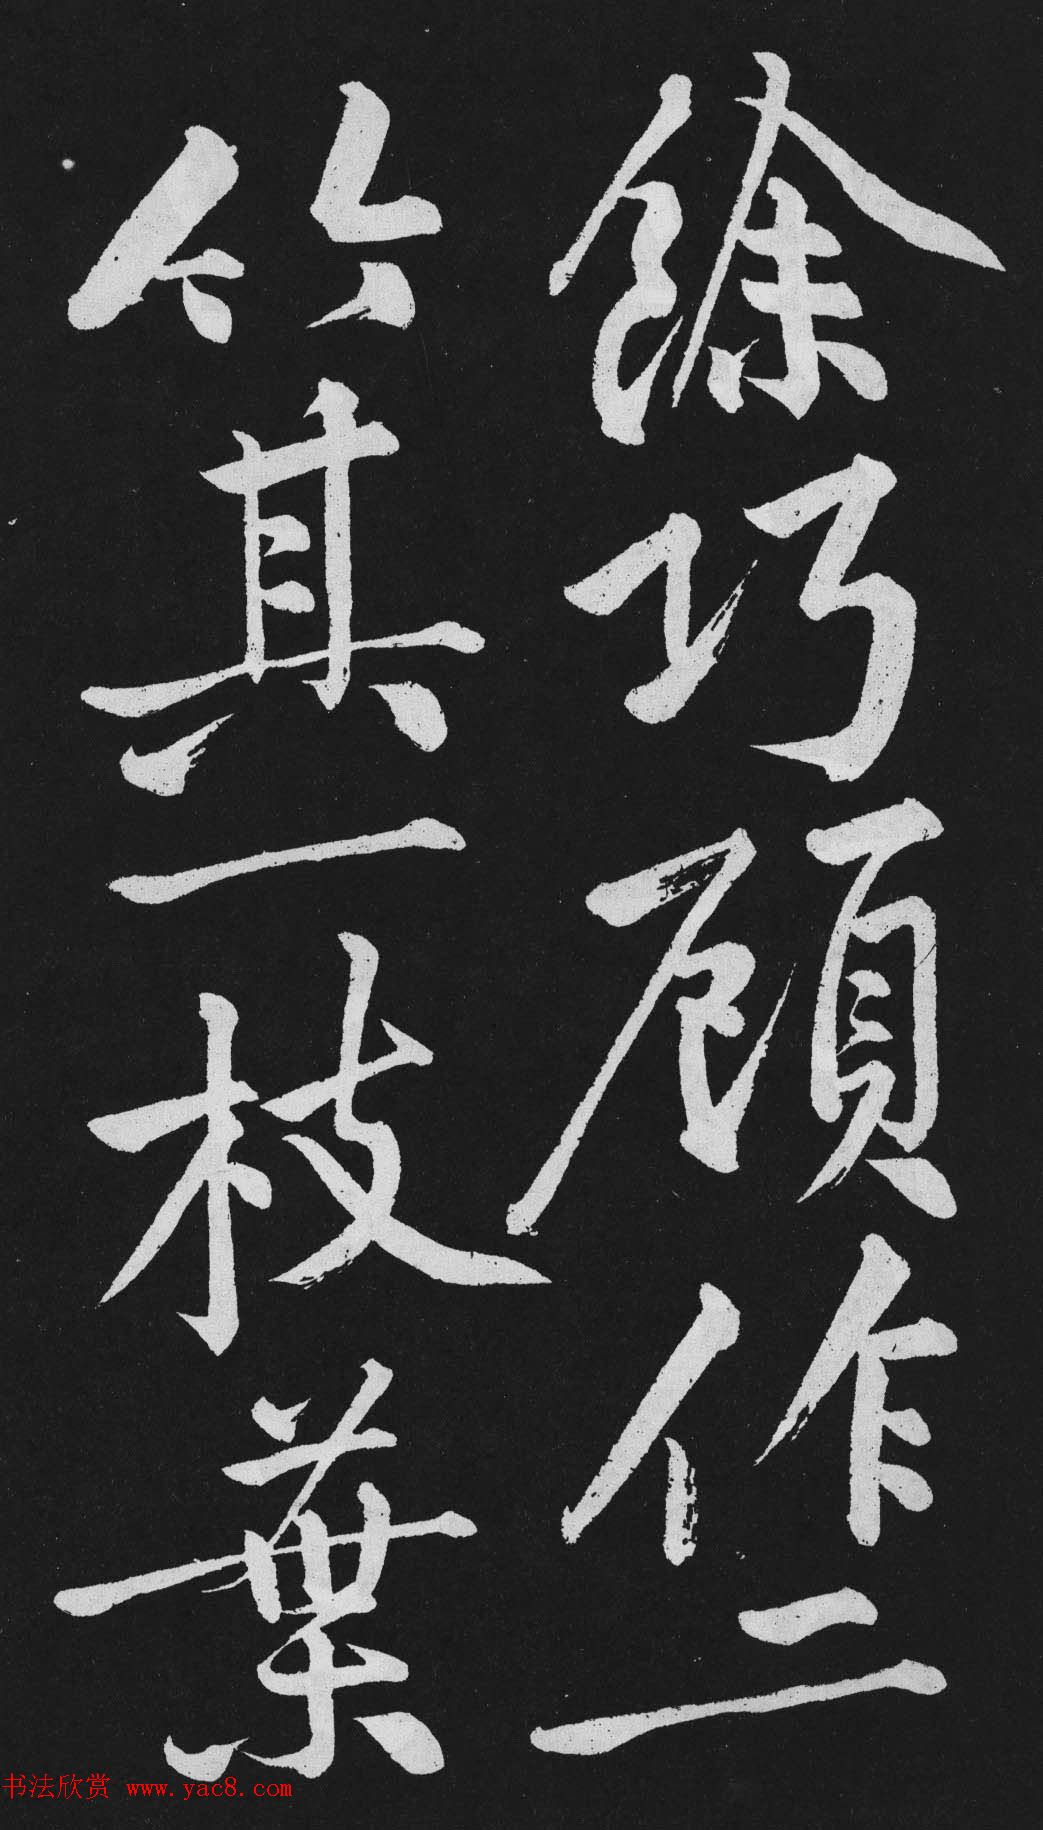 餘巧顧作二
竹其一枝葉
书法欣赏 www.yac8.com